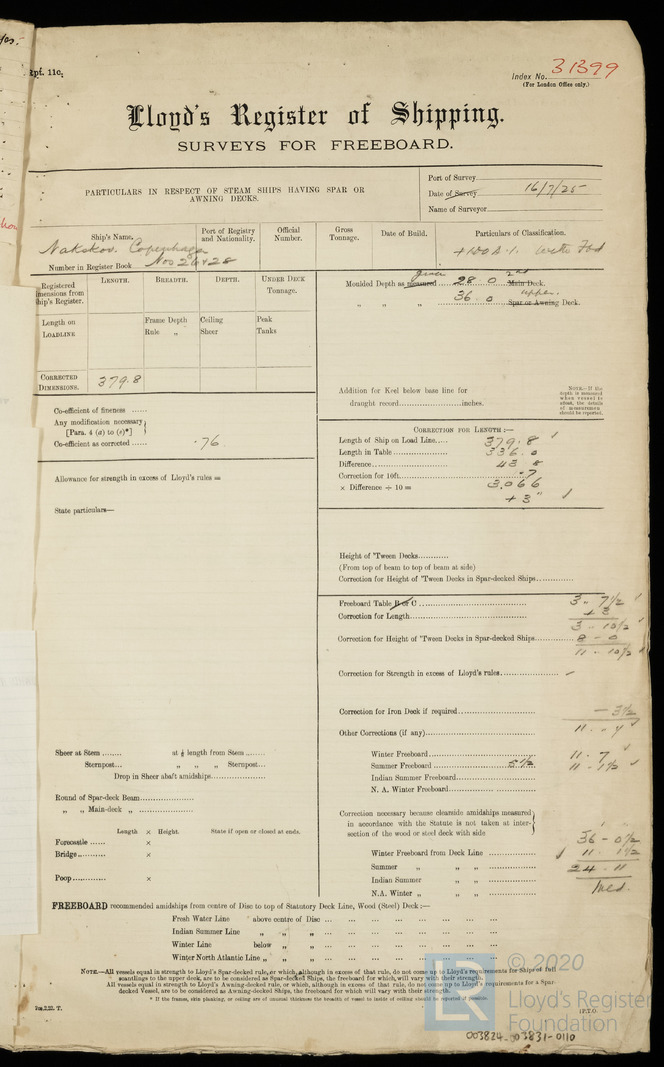 Rpt. 11c.
Index No. 31399
(For London Office only.)
Lloyd's Register of Shipping.
SURVEYS FOR FREEBOARD.
PARTICULARS IN RESPECT OF STEAM SHIPS HAVING SPAR OR
AWNING DECKS.
Port of Survey
Date of Survey 16/7/25
Name of Surveyor
Ship's Name.
Port of Registry
and Nationality.
Official
Number.
Gross
Tonnage.
Date of Build.
Particulars of Classification.
Nakskov Copenhagen
+100A.1. with Fbd
Number in Register Book Nos 26 & 28
Registered
Dimensions from
Ship's Register.
LENGTH.
BREADTH.
DEPTH.
UNDER DECK
TONNAGE.
Length on
LOADLINE
Frame Depth
Rule "
Ceiling
Sheer
Peak
Tanks
CORRECTED
DIMENSIONS.
379.8
Moulded Depth as measured given 28 0 2nd Main Deck.
" " " 36. 0 upper. Spar or Awning Deck.
Addition for Keel below base line for
draught record inches.
NOTE.—If the
depth is measured
when vessel is
afloat, the details
of measurement
should be reported.
Co-efficient of fineness
Any modification necessary
[Para. 4 (a) to (e)*]
Co-efficient as corrected .76
CORRECTION FOR LENGTH:—
Length of Ship on Load Line 379.8
Length in Table 336.0
Difference 43 8
Correction for 10ft. .7
× Difference ÷ 10 = 3.066
+3"
Allowance for strength in excess of Lloyd's rules =
State particulars—
Height of 'Tween Decks
(From top of beam to top of beam at side)
Correction for Height of 'Tween Decks in Spar-decked Ships
Freeboard Table B or C 3 " 7 1/2
Correction for Length + 3
3 - 10 1/2
Correction for Height of 'Tween Decks in Spar-decked Ships 8 - 0
11 - 10 1/2
Correction for Strength in excess of Lloyd's rules
Correction for Iron Deck if required - 3 1/2
Other Corrections (if any) 11 - 7
Winter Freeboard 11 - 7
Summer Freeboard 5 1/2 11 - 1 1/2
Indian Summer Freeboard
N. A. Winter Freeboard
Sheer at Stem at ⅛ length from Stem
Sternpost " " " Sternpost
Drop in Sheer abaft amidships
Round of Spar-deck Beam
" " Main-deck "
Length × Height. State if open or closed at ends.
Forecastle ×
Bridge ×
Poop ×
Correction necessary because clearside amidships measured
in accordance with the Statute is not taken at inter-
section of the wood or steel deck with side
36 - 0 1/2
Winter Freeboard from Deck Line 11 . 1 1/2
Summer " " " 24 - 11
Indian Summer " "
N.A. Winter " " "
FREEBOARD recommended amidships from centre of Disc to top of Statutory Deck Line, Wood (Steel) Deck:—
Fresh Water Line above centre of Disc
Indian Summer Line " " "
Winter Line below " "
Winter North Atlantic Line " " "
NOTE.—All vessels equal in strength to Lloyd's Spar-decked rule, or which, although in excess of that rule, do not come up to Lloyd's requirements for Ships of full
scantlings to the upper deck, are to be considered as Spar-decked Ships, the freeboard for which, will vary with their strength.
All vessels equal in strength to Lloyd's Awning-decked rule, or which, although in excess of that rule, do not come up to Lloyd's requirements for a Spar-
decked Vessel, are to be considered as Awning-decked Ships, the freeboard for which will vary with their strength.
* If the frames, skin planking, or ceiling are of unusual thickness the breadth of vessel to inside of ceiling should be reported if possible.
[P.T.O.
© 2020
Lloyd's Register
Foundation
LR
003824-03831-0110